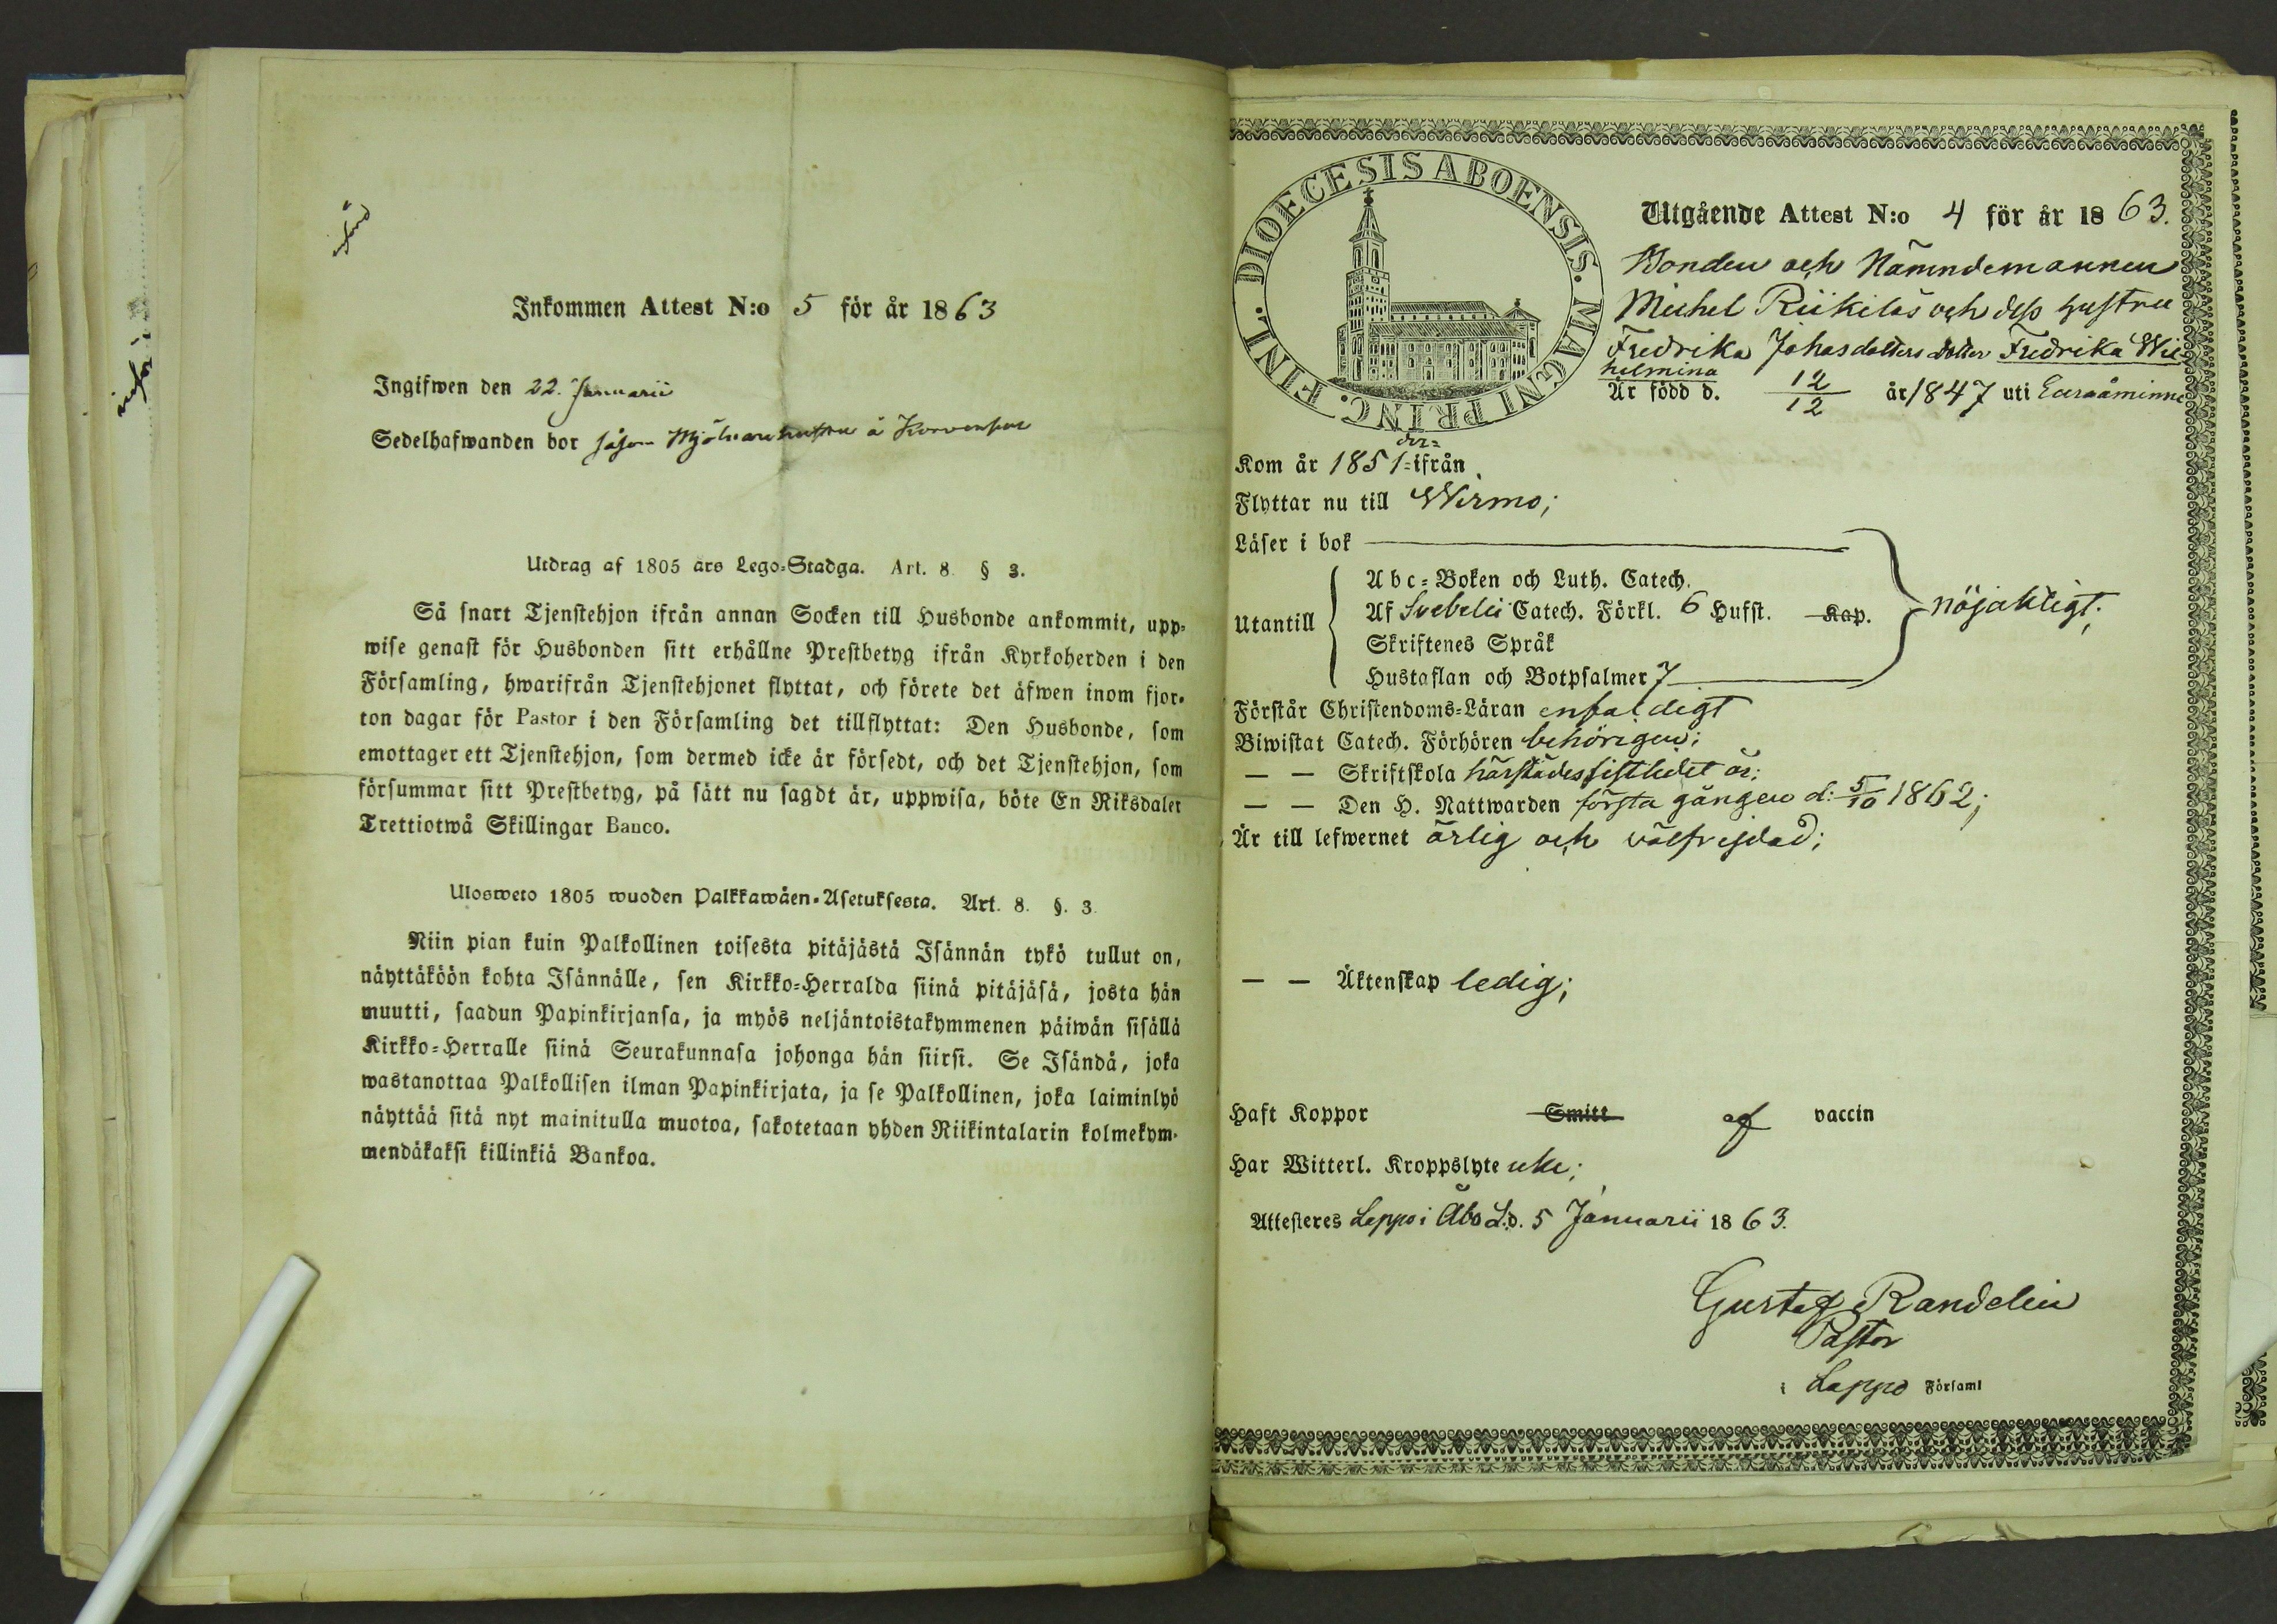 införd
Inkommen Attest N:o 5 för år 1863
Ingifwen den 22. Januarii
Sedelhafwanden bor såsom Mjölnarehustru å
Utdrag af 1805 års Lego-Stadga. Art. 8. § 3.
Så snart Tjenstehjon ifrån annan Socken till Husbonde ankommit, upp-
wise genast för Husbonden sitt erhållne Prestbetyg ifrån Kyrkoherden i den
Församling, hwarifrån Tjenstehjonet flyttat, och förete det äfwen inom fjor-
ton dagar för Pastor i den Församling det tillflyttat: Den Husbonde, som
emottager ett Tjenstehjon, som dermed icke är försedt, och det Tjenstehjon, som
försummar sitt Prestbetyg, på sätt nu sagdt är, uppwisa, böte En Riksdaler
Trettiotwå Skillingar Banco.
Ulosweto 1805 wuoden Palkkawäen-Asetuksesta. Art. 8. §. 3.
Niin pian kuin Palkollinen toisesta pitäjästä Isännän tykö tullut on,
näyttäköön kohta Isännälle, sen Kirkko-Herralda siinä pitäjäsä, josta hän
muutti, saadun Papinkirjansa, ja myös neljäntoistakymmenen päiwän sisällä
Kirkko-Herralle siinä Seurakunnasa johonga hän siirsi. Se Isändä, joka
wastanottaa Palkollisen ilman Papinkirjata, ja se Palkollinen, joka laiminlyö
näyttää sitä nyt mainitulla muotoa, sakotetaan yhden Riikintalarin kolmekym-
mendäkaksi killinkiä Bankoa.
DIOECESIS ABOENSIS. MAGNI PRINC. FINL.
Utgående Attest N:o 4 för år 1863.
Bonden och Nämndemannen
Michel Riikiläs och dess hustru
Fredrika Johasdotters dotter Fredrika Wil-
helmina
Är född d. 12/12 år 1847 uti Euraåminne
Kom år 1851 ifrån
Flyttar nu till Wirmo;
Läser i bok
Utantill
Abc-Boken och Luth. Catech.
Af Svebelii Catech. Förkl. 6 Hufst. Kap.
Skriftenes Språk
Hustaflan och Botpsalmer 7
nöjaktigt;
Förstår Christendoms-Läran enfaldigt
Biwistat Catech. Förhören behörigen;
— — Skriftskola härstädes sistledet år;
— — Den H. Nattwarden första gången d: 5/10 1862;
Är till lefwernet ärlig och välfrejdad;
— — Äktenskap ledig;
Haft Koppor Smitt af vaccin
Har Witterl. Kroppslyte icke;
Attesteres Lappo i Åbo L. d. 5 Januarii 1863.
Gustaf Randelin
Pastor
i Lappo Församl